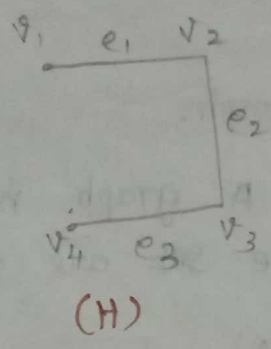 v₁ e₁ v₂
e₂
v₄ e₃ v₃
(H)